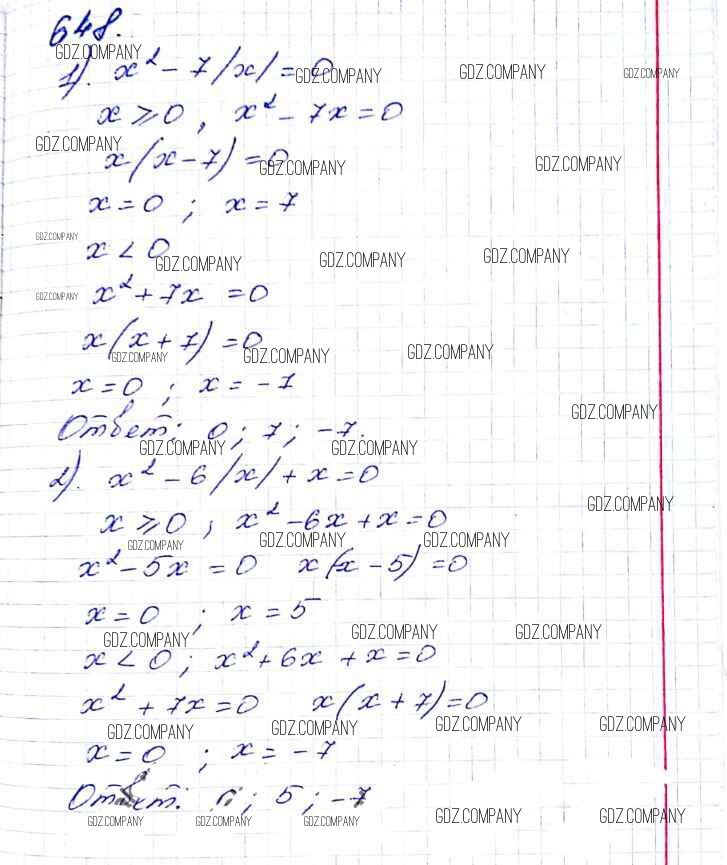 648.
GDZ.COMPANY
1). x² - 7|x| = 0
GDZ.COMPANY GDZ.COMPANY GDZ.COMPANY
x ⩾ 0, x² - 7x = 0
GDZ.COMPANY
x(x - 7) = 0
GDZ.COMPANY GDZ.COMPANY
x = 0 ; x = 7
GDZ.COMPANY
x < 0
GDZ.COMPANY GDZ.COMPANY GDZ.COMPANY
GDZ.COMPANY
x² + 7x = 0
x(x + 7) = 0
GDZ.COMPANY GDZ.COMPANY GDZ.COMPANY
x = 0 ; x = -7
GDZ.COMPANY
Ответ: 0; 7; -7.
GDZ.COMPANY GDZ.COMPANY
2). x² - 6|x| + x = 0
GDZ.COMPANY
x ⩾ 0, x² - 6x + x = 0
GDZ.COMPANY GDZ.COMPANY GDZ.COMPANY
x² - 5x = 0 x(x - 5) = 0
x = 0 ; x = 5
GDZ.COMPANY GDZ.COMPANY GDZ.COMPANY
x < 0; x² + 6x + x = 0
x² + 7x = 0 x(x + 7) = 0
GDZ.COMPANY GDZ.COMPANY GDZ.COMPANY GDZ.COMPANY
x = 0 ; x = -7
Ответ: 0; 5; -7
GDZ.COMPANY GDZ.COMPANY GDZ.COMPANY GDZ.COMPANY GDZ.COMPANY